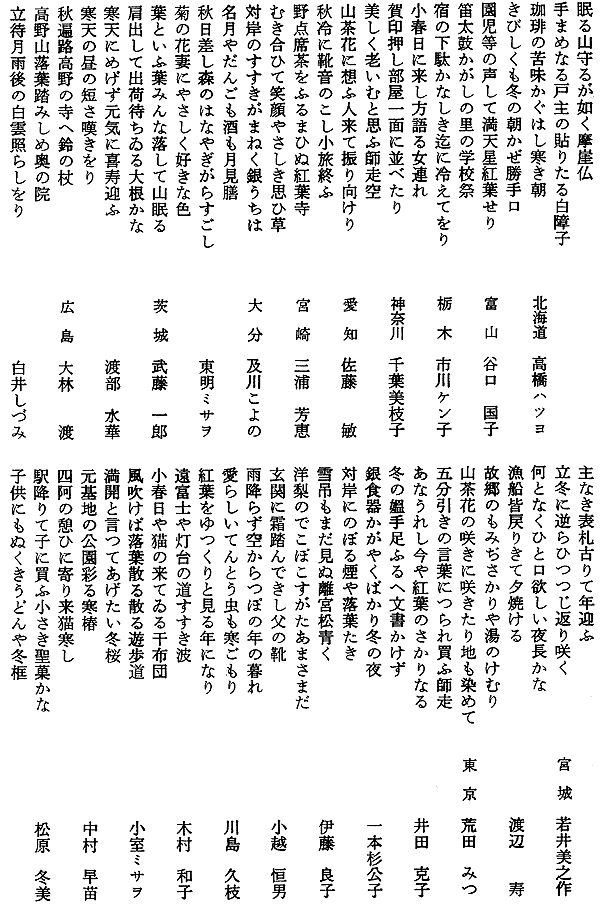 眠る山守るが如く摩崖仏
手まめなる戸主の貼りたる白障子
珈琲の苦味かぐはし寒き朝
北海道 高橋ハツヨ
きびしくも冬の朝かぜ勝手口
園児等の声して満天星紅葉せり
富山 谷口国子
笛太鼓かがしの里の学校祭
宿の下駄かなしき迄に冷えてをり
栃木 市川ケン子
小春日に来し方語る女連れ
賀印押し部屋一面に並べたり
神奈川 千葉美枝子
美しく老いむと思ふ師走空
山茶花に想ふ人来て振り向けり
愛知 佐藤敏
秋冷に靴音のこし小旅終ふ
野点席茶をふるまひぬ紅葉寺
宮崎 三浦芳恵
むき合ひて笑顔やさしき思ひ草
対岸のすすきがまねく銀うちは
大分 及川こよの
名月やだんごも酒も月見膳
秋日差し森のはなやぎがらすごし
東明ミサヲ
菊の花妻にやさしく好きな色
葉といふ葉みんな落して山眠る
茨城 武藤一郎
肩出して出荷待ちゐる大根かな
寒天にめげず元気に喜寿迎ふ
渡部水華
寒天の昼の短さ嘆きをり
秋遍路高野の寺へ鈴の杖
広島 大林渡
高野山落葉踏みしめ奥の院
立待月雨後の白雲照らしをり
白井しづみ
主なき表札古りて年迎ふ
立冬に逆らひつつじ返り咲く
宮城 若井美之作
何となくひと口欲しい夜長かな
漁船皆戻りきて夕焼ける
渡辺寿
故郷のもみぢさかりや湯のけむり
山茶花の咲きに咲きたり地も染めて
東京 荒田みつ
五分引きの言葉につられ買ふ師走
あなうれし今や紅葉のさかりなる
井田克子
冬の蝹手足ふるへ文書かけず
銀食器かがやくばかり冬の夜
一本杉公子
対岸にのぼる煙や落葉たき
雪吊もまだ見ぬ離宮松青く
伊藤良子
洋梨のでこぼこすがたあまさまだ
玄関に霜踏んできし父の靴
小越恒男
雨降らず空からつぽの年の暮れ
愛らしいてんとう虫も寒ごもり
川島久枝
紅葉をゆつくりと見る年になり
遠富士や灯台の道すすき波
木村和子
小春日や猫の来てゐる干布団
風吹けば落葉散る散る遊歩道
小室ミサヲ
満開と言つてあげたい冬桜
元基地の公園彩る寒椿
中村早苗
四阿の憩ひに寄り来猫寒し
駅降りて子に買ふ小さき聖菓かな
松原冬美
子供にもぬくきうどんや冬框